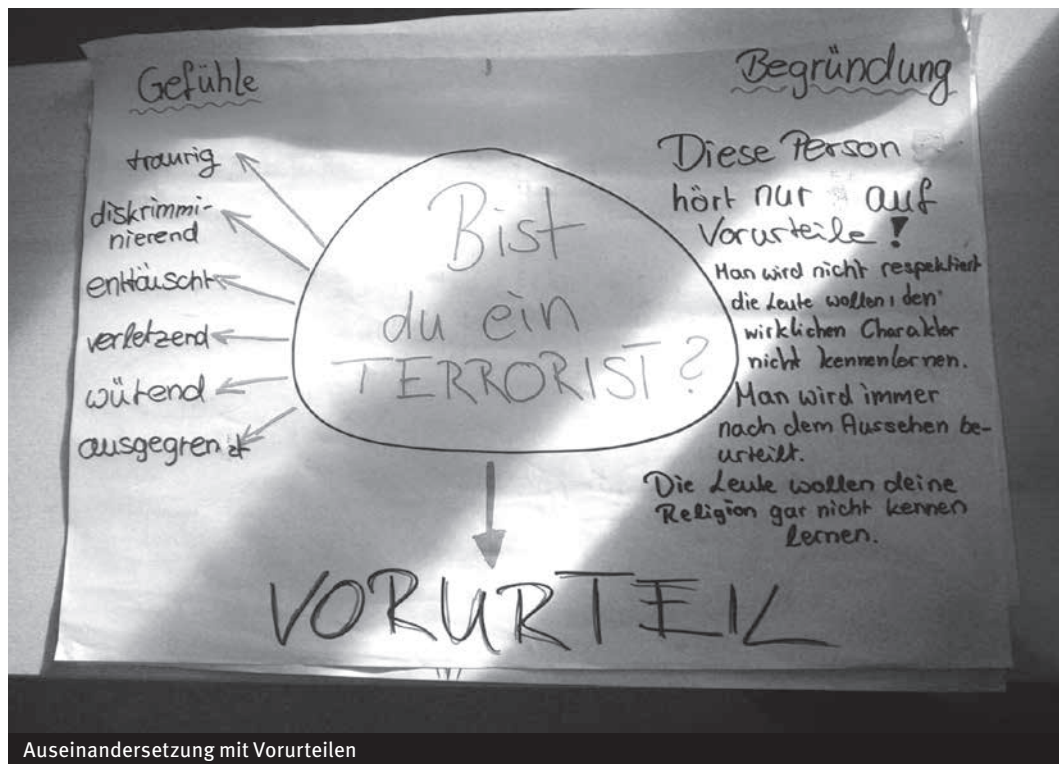 Gefühle
traurig
diskrimmi-
nierend
enttäuscht
verletzend
wütend
ausgegrenzt
Bist
du ein
TERRORIST?
Begründung
Diese Person
hört nur auf
Vorurteile!
Man wird nicht respektiert
die Leute wollen, den
wirklichen Charakter
nicht kennenlernen.
Man wird immer
nach dem Aussehen be-
urteilt.
Die Leute wollen deine
Religion gar nicht kennen
lernen.
VORURTEIL
Auseinandersetzung mit Vorurteilen